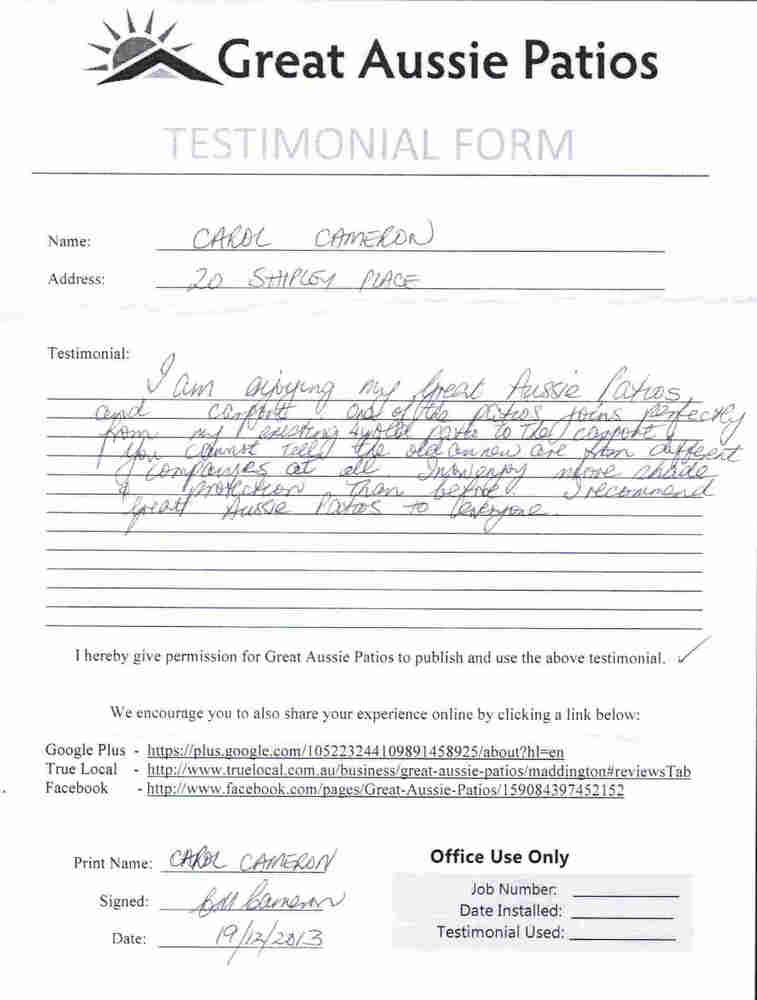 Great Aussie Patios
TESTIMONIAL FORM
Name: CAROL CAMERON
Address: 20 SHIPLEY PLACE
Testimonial:
I am enjoying my Great Aussie Patios,
and carport. One of the patios joins perfectly
from my existing old patio to the carport
you cannot tell the old an new are from different
companies at all. I now enjoy more shade
& protection than before. I recommend
Great Aussie Patios to everyone.
I hereby give permission for Great Aussie Patios to publish and use the above testimonial. ✓
We encourage you to also share your experience online by clicking a link below:
Google Plus - https://plus.google.com/105223244109891458925/about?hl=en
True Local - http://www.truelocal.com.au/business/great-aussie-patios/maddington#reviewsTab
Facebook - http://www.facebook.com/pages/Great-Aussie-Patios/159084397452152
Print Name: CAROL CAMERON
Office Use Only
Signed: Cameron
Job Number:
Date Installed:
Date: 19/12/2013
Testimonial Used: